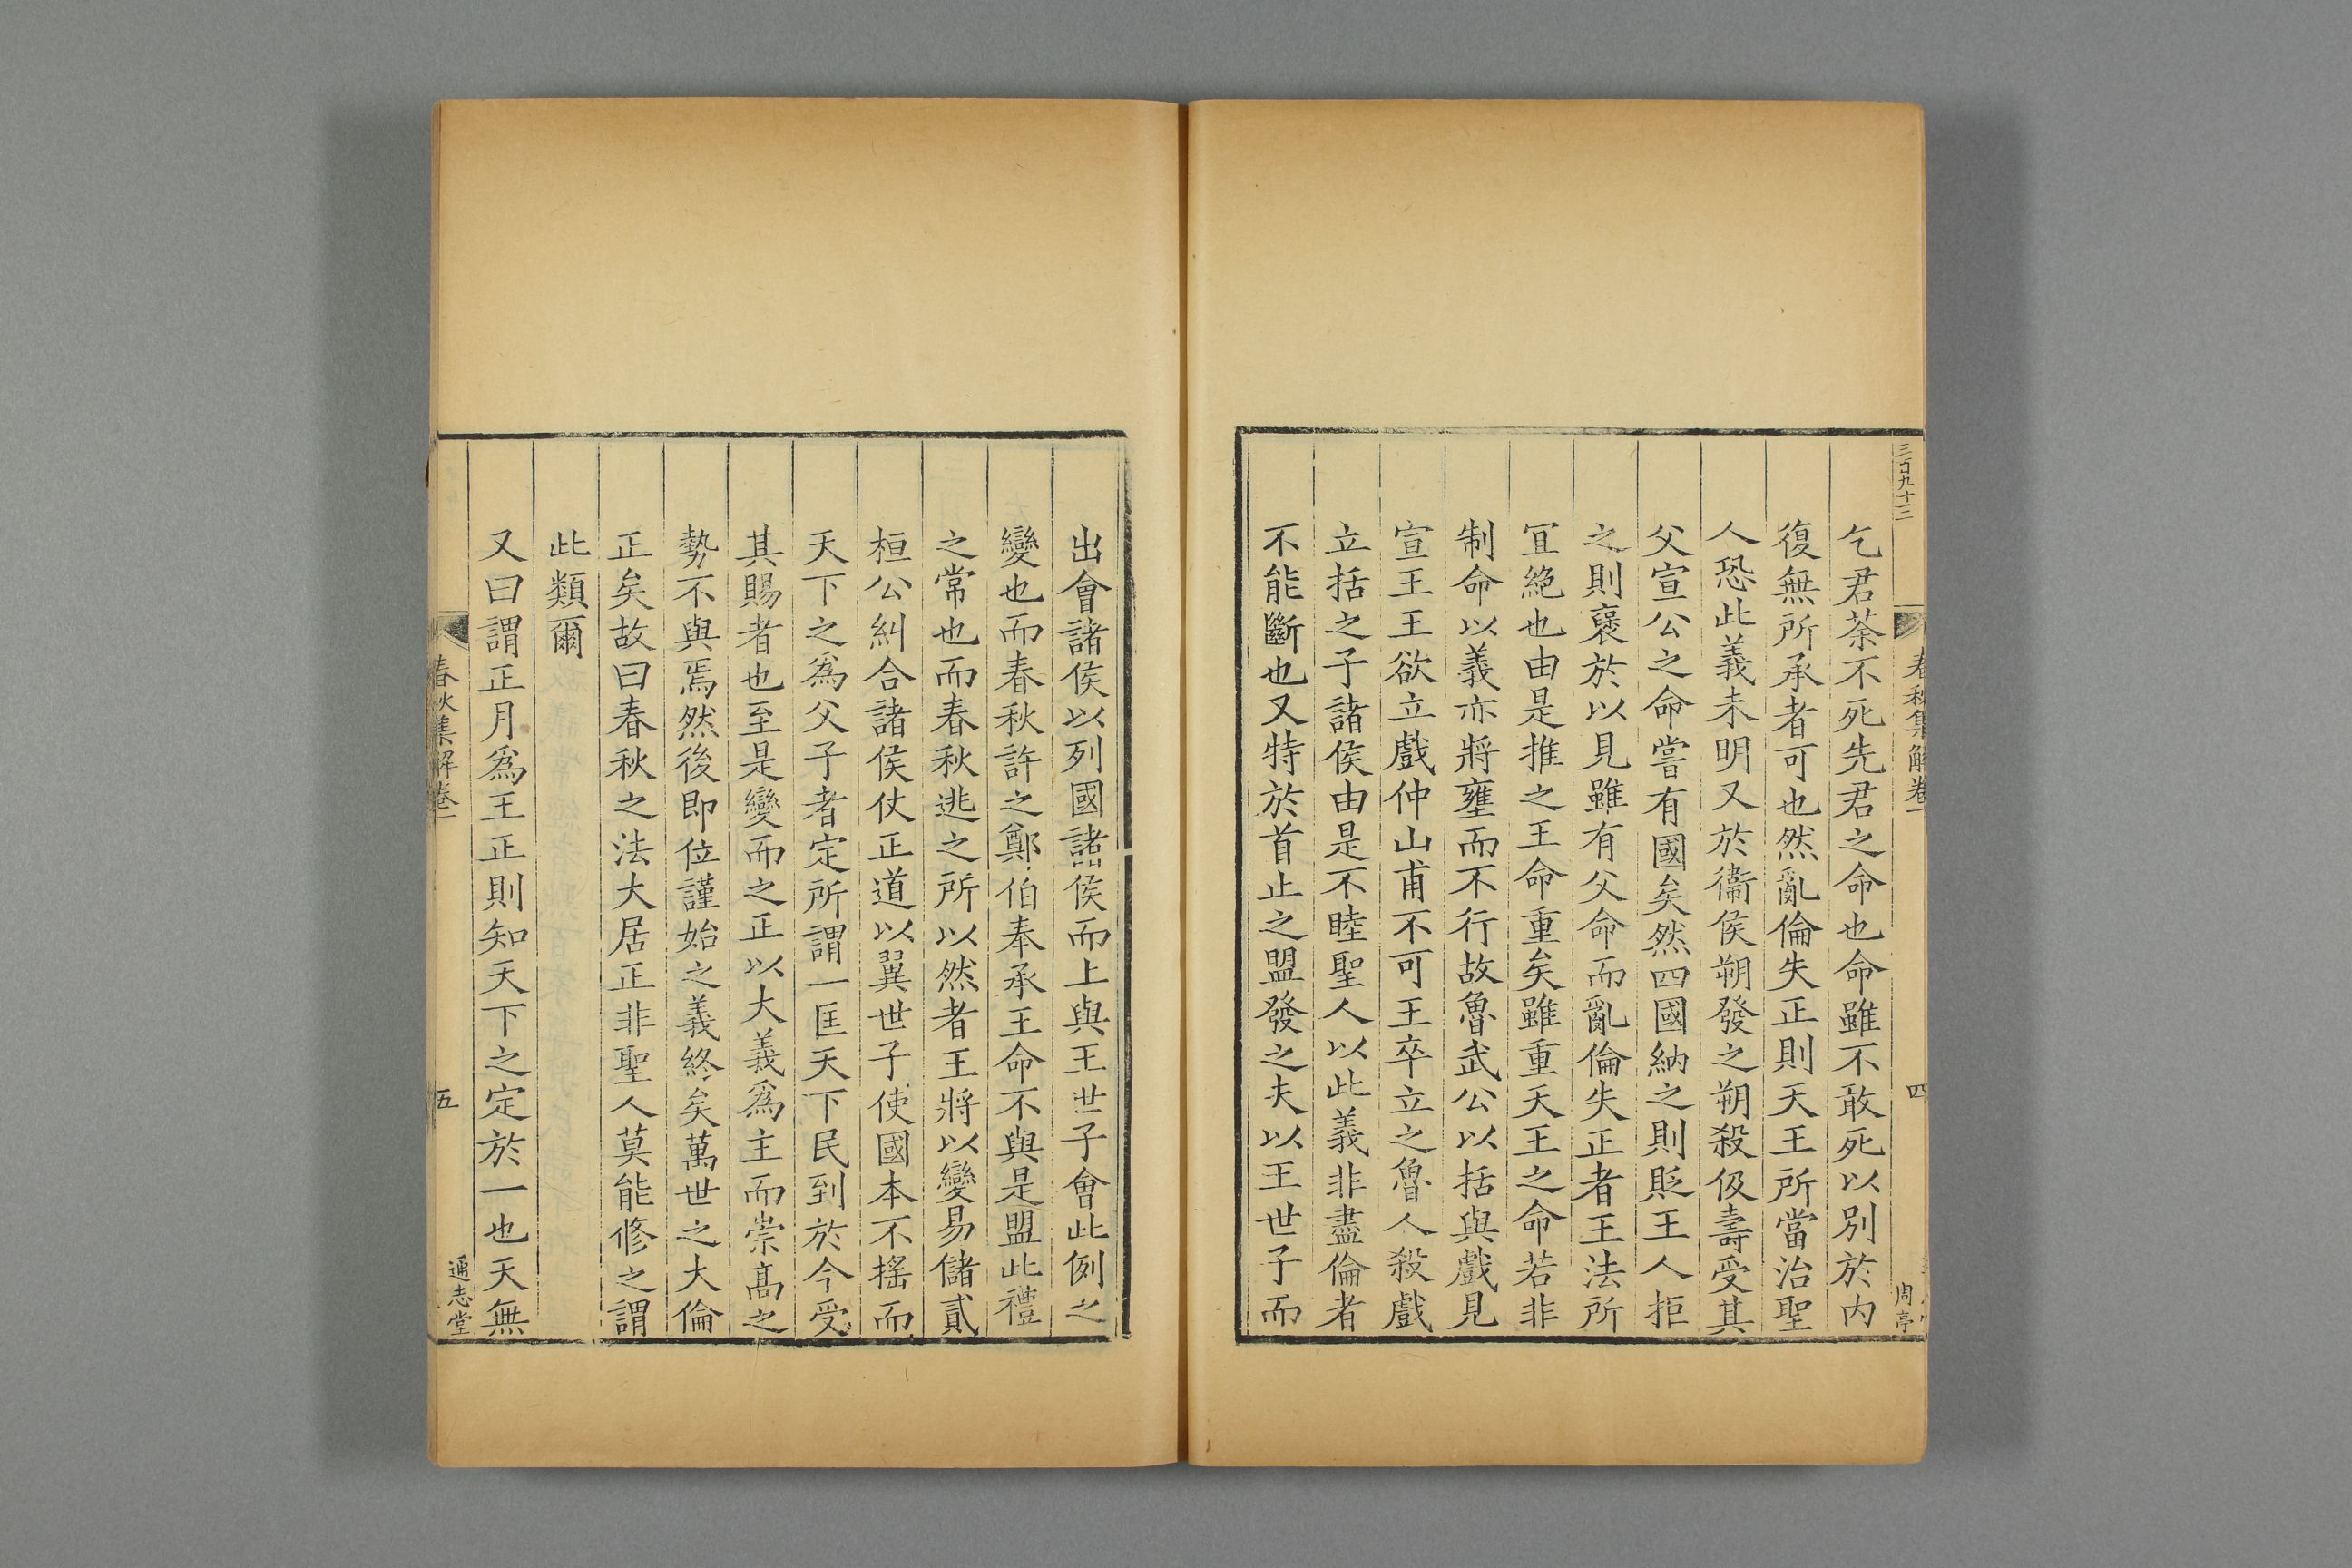 三百九十三
春秋集解卷一
四
周亭
乞君荼不死先君之命也命雖不敢死以別於內
復無所承者可也然亂倫失正則天王所當治聖
人恐此義未明又於衞侯朔發之朔殺伋壽受其
父宣公之命嘗有國矣然四國納之則貶王人拒
之則襃於以見雖有父命而亂倫失正者王法所
冝絶也由是推之王命重矣雖重天王之命若非
制命以義亦將壅而不行故魯武公以括與戲見
宣王王欲立戲仲山甫不可王卒立之魯人殺戲
立括之子諸侯由是不睦聖人以此義非盡倫者
不能斷也又特於首止之盟發之夫以王世子而
出會諸侯以列國諸侯而上與王世子會此例之
變也而春秋許之鄭伯奉承王命不與是盟此禮
之常也而春秋逃之所以然者王將以變易儲貳
桓公糾合諸侯仗正道以翼世子使國本不搖而
天下之爲父子者定所謂一匡天下民到於今受
其賜者也至是變而之正以大義爲主而崇髙之
勢不與焉然後即位謹始之義終矣萬世之大倫
正矣故曰春秋之法大居正非聖人莫能修之謂
此類爾
又曰謂正月爲王正則知天下之定於一也天無
春秋集解卷一
五
通志堂